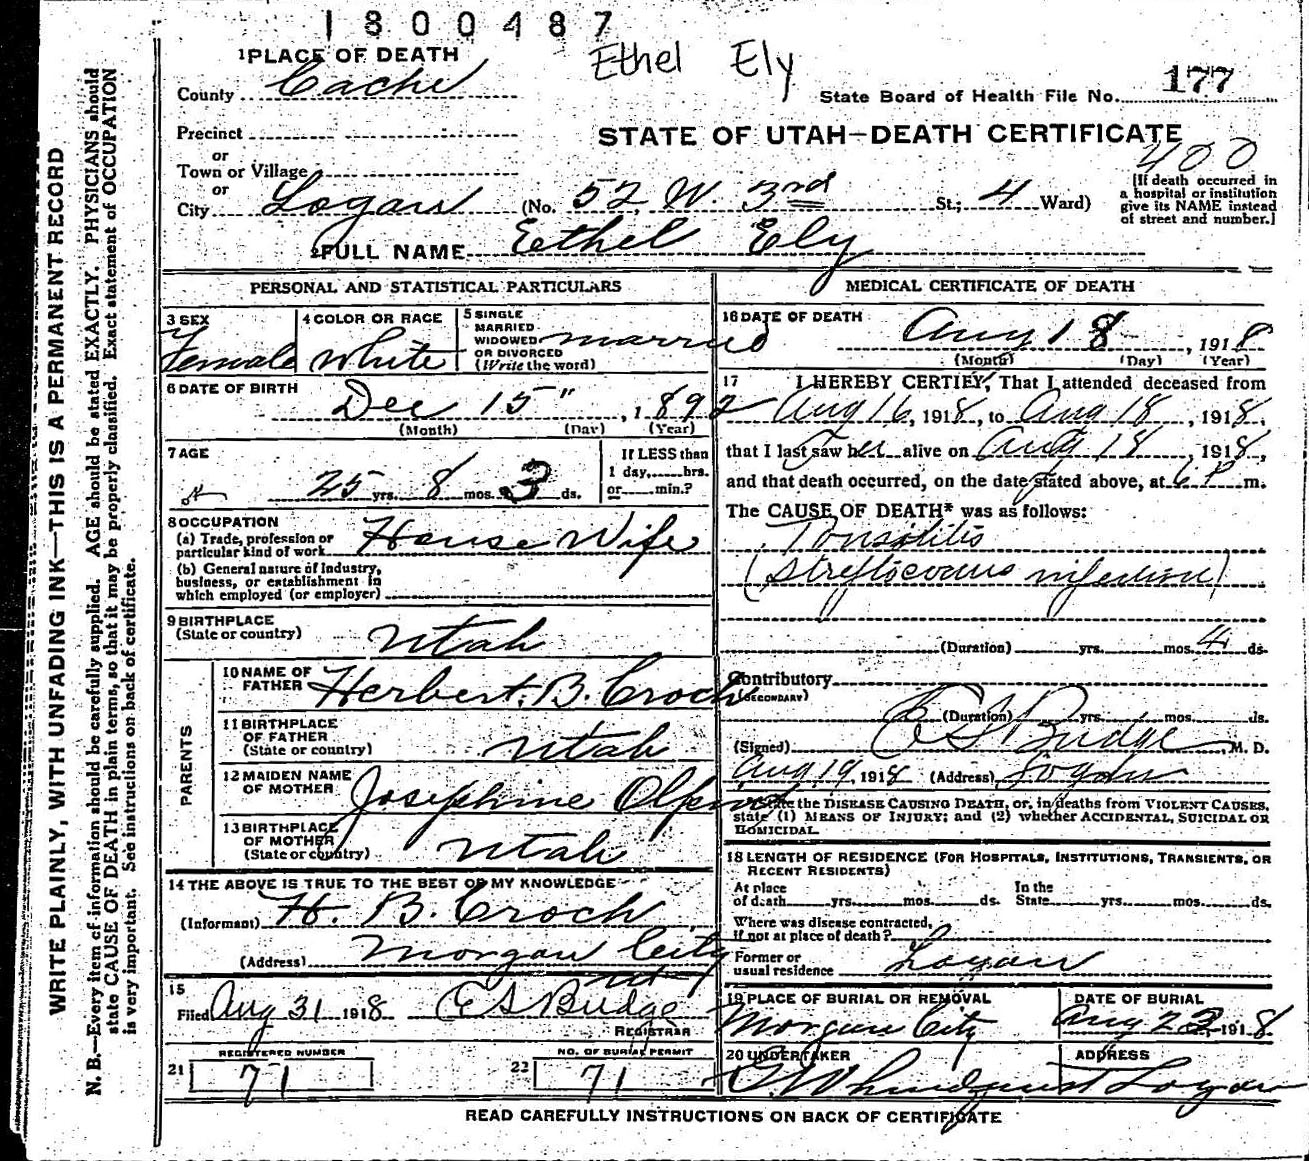 1800487
1 PLACE OF DEATH
Ethel Ely
County Cache
State Board of Health File No. 177
Precinct
STATE OF UTAH—DEATH CERTIFICATE
or
Town or Village
400
or
City Logan (No. 52 W. 3rd St.; 4 Ward)
[If death occurred in
a hospital or institution
give its NAME instead
of street and number.]
2 FULL NAME Eethel Ely
PERSONAL AND STATISTICAL PARTICULARS
3 SEX
Female
4 COLOR OR RACE
White
5 SINGLE
MARRIED
WIDOWED
OR DIVORCED
(Write the word)
married
6 DATE OF BIRTH
Dec 15", 1892
(Month) (Day) (Year)
7 AGE
25 yrs. 8 mos. 3 ds.
If LESS than
1 day,......hrs.
or......min.?
8 OCCUPATION
(a) Trade, profession or
particular kind of work House Wife
(b) General nature of Industry,
business, or establishment in
which employed (or employer)
9 BIRTHPLACE
(State or country) Utah
PARENTS
10 NAME OF
FATHER Herbert. B. Croch
11 BIRTHPLACE
OF FATHER
(State or country) Utah
12 MAIDEN NAME
OF MOTHER Josephine
13 BIRTHPLACE
OF MOTHER
(State or country) Utah
14 THE ABOVE IS TRUE TO THE BEST OF MY KNOWLEDGE
(Informant) H. B. Croch
(Address) Morgan City
Ut
15
Filed Aug 31 1918 E S Budge
REGISTRAR
REGISTERED NUMBER
21 71
NO. OF BURIAL PERMIT
22 71
MEDICAL CERTIFICATE OF DEATH
16 DATE OF DEATH
Aug 18, 1918
(Month) (Day) (Year)
17 I HEREBY CERTIFY, That I attended deceased from
Aug 16, 1918, to Aug 18, 1918,
that I last saw her alive on Aug 18, 1918,
and that death occurred, on the date stated above, at 6 P m.
The CAUSE OF DEATH* was as follows:
Tonsolitis
(Streptococcus infection)
(Duration) yrs. mos. 4 ds.
Contributory
(SECONDARY)
(Duration) yrs. mos. ds.
(Signed) E S Budge M. D.
Aug 19, 1918 (Address) Logan
State the DISEASE CAUSING DEATH, or, in deaths from VIOLENT CAUSES,
state (1) MEANS OF INJURY; and (2) whether ACCIDENTAL, SUICIDAL OR
HOMICIDAL.
18 LENGTH OF RESIDENCE (FOR HOSPITALS, INSTITUTIONS, TRANSIENTS, OR
RECENT RESIDENTS)
At place
of death......yrs......mos......ds.
In the
State......yrs......mos......ds.
Where was disease contracted,
if not at place of death?
Former or
usual residence Logan
19 PLACE OF BURIAL OR REMOVAL
Morgan City
DATE OF BURIAL
Aug 23, 1918
20 UNDERTAKER
ADDRESS
Logan
READ CAREFULLY INSTRUCTIONS ON BACK OF CERTIFICATE
WRITE PLAINLY, WITH UNFADING INK—THIS IS A PERMANENT RECORD
N. B.—Every item of information should be carefully supplied. AGE should be stated EXACTLY. PHYSICIANS should
state CAUSE OF DEATH in plain terms, so that it may be properly classified. Exact statement of OCCUPATION
is very important. See instructions on back of certificate.